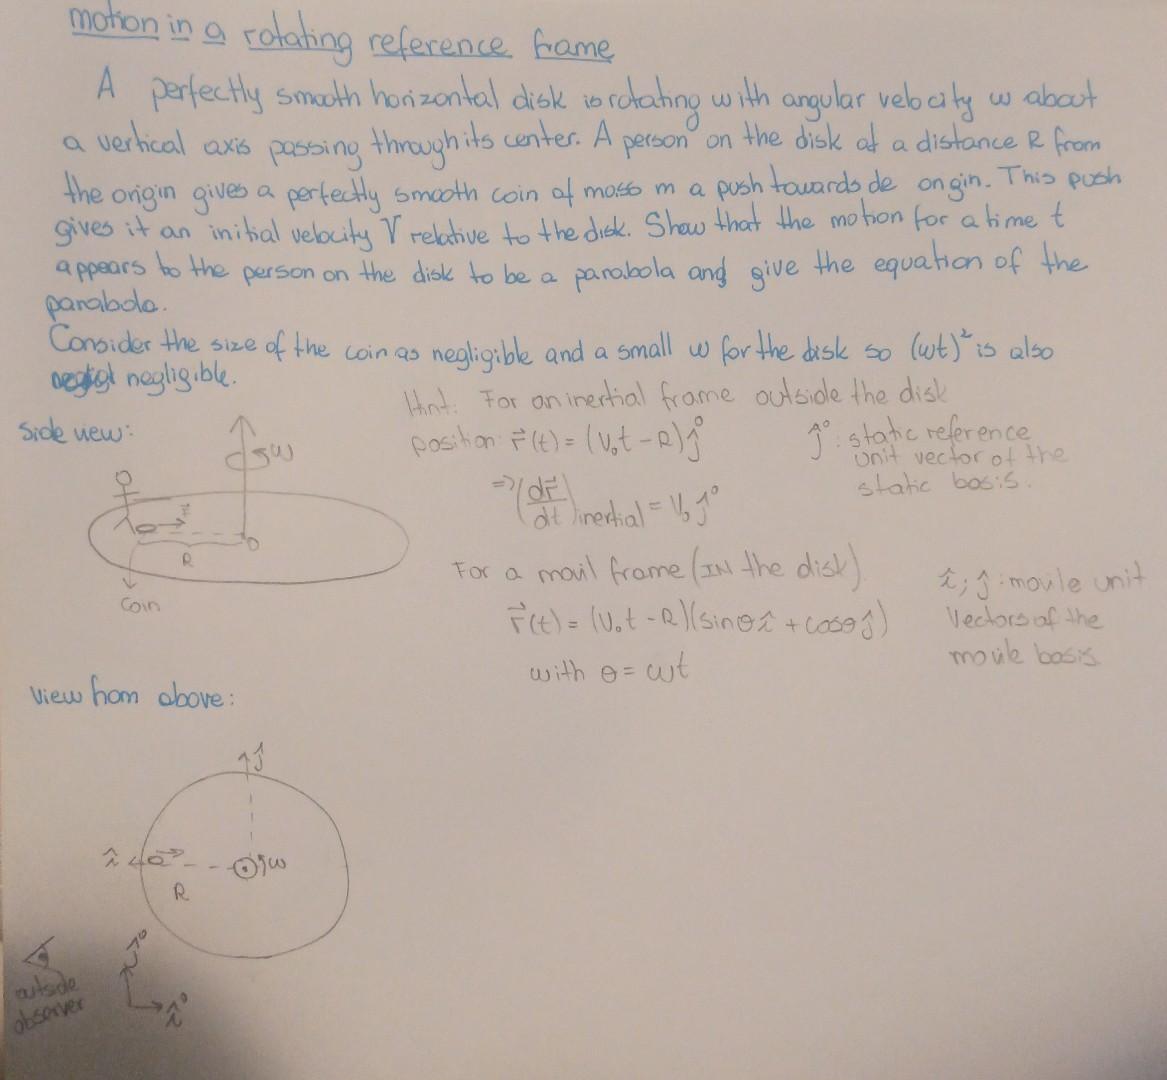 motion in a rotating reference frame
A perfectly smooth horizontal disk is rotating with angular velocity ω about
a vertical axis passing through its center. A person on the disk at a distance R from
the origin gives a perfectly smooth coin of mass m a push towards de origin. This push
gives it an initial velocity V relative to the disk. Show that the motion for a time t
appears to the person on the disk to be a parabola and give the equation of the
parabola.
Consider the size of the coin as negligible and a small ω for the disk so (ωt)² is also
negligible.
Hint: For an inertial frame outside the disk
Side view:
position: r⃗(t) = (V₀t - R)ĵ°
ĵ°: static reference
unit vector of the
static basis.
ω
=> (dr⃗/dt)inertial = V₀ĵ°
R
O
Coin
For a movil frame (IN the disk).
r⃗(t) = (V₀t - R)(sinθî + cosθĵ)
with θ = ωt
î; ĵ: movile unit
Vectors of the
movile basis
View from above:
ĵ
î
ω
R
ĵ°
î°
outside
observer